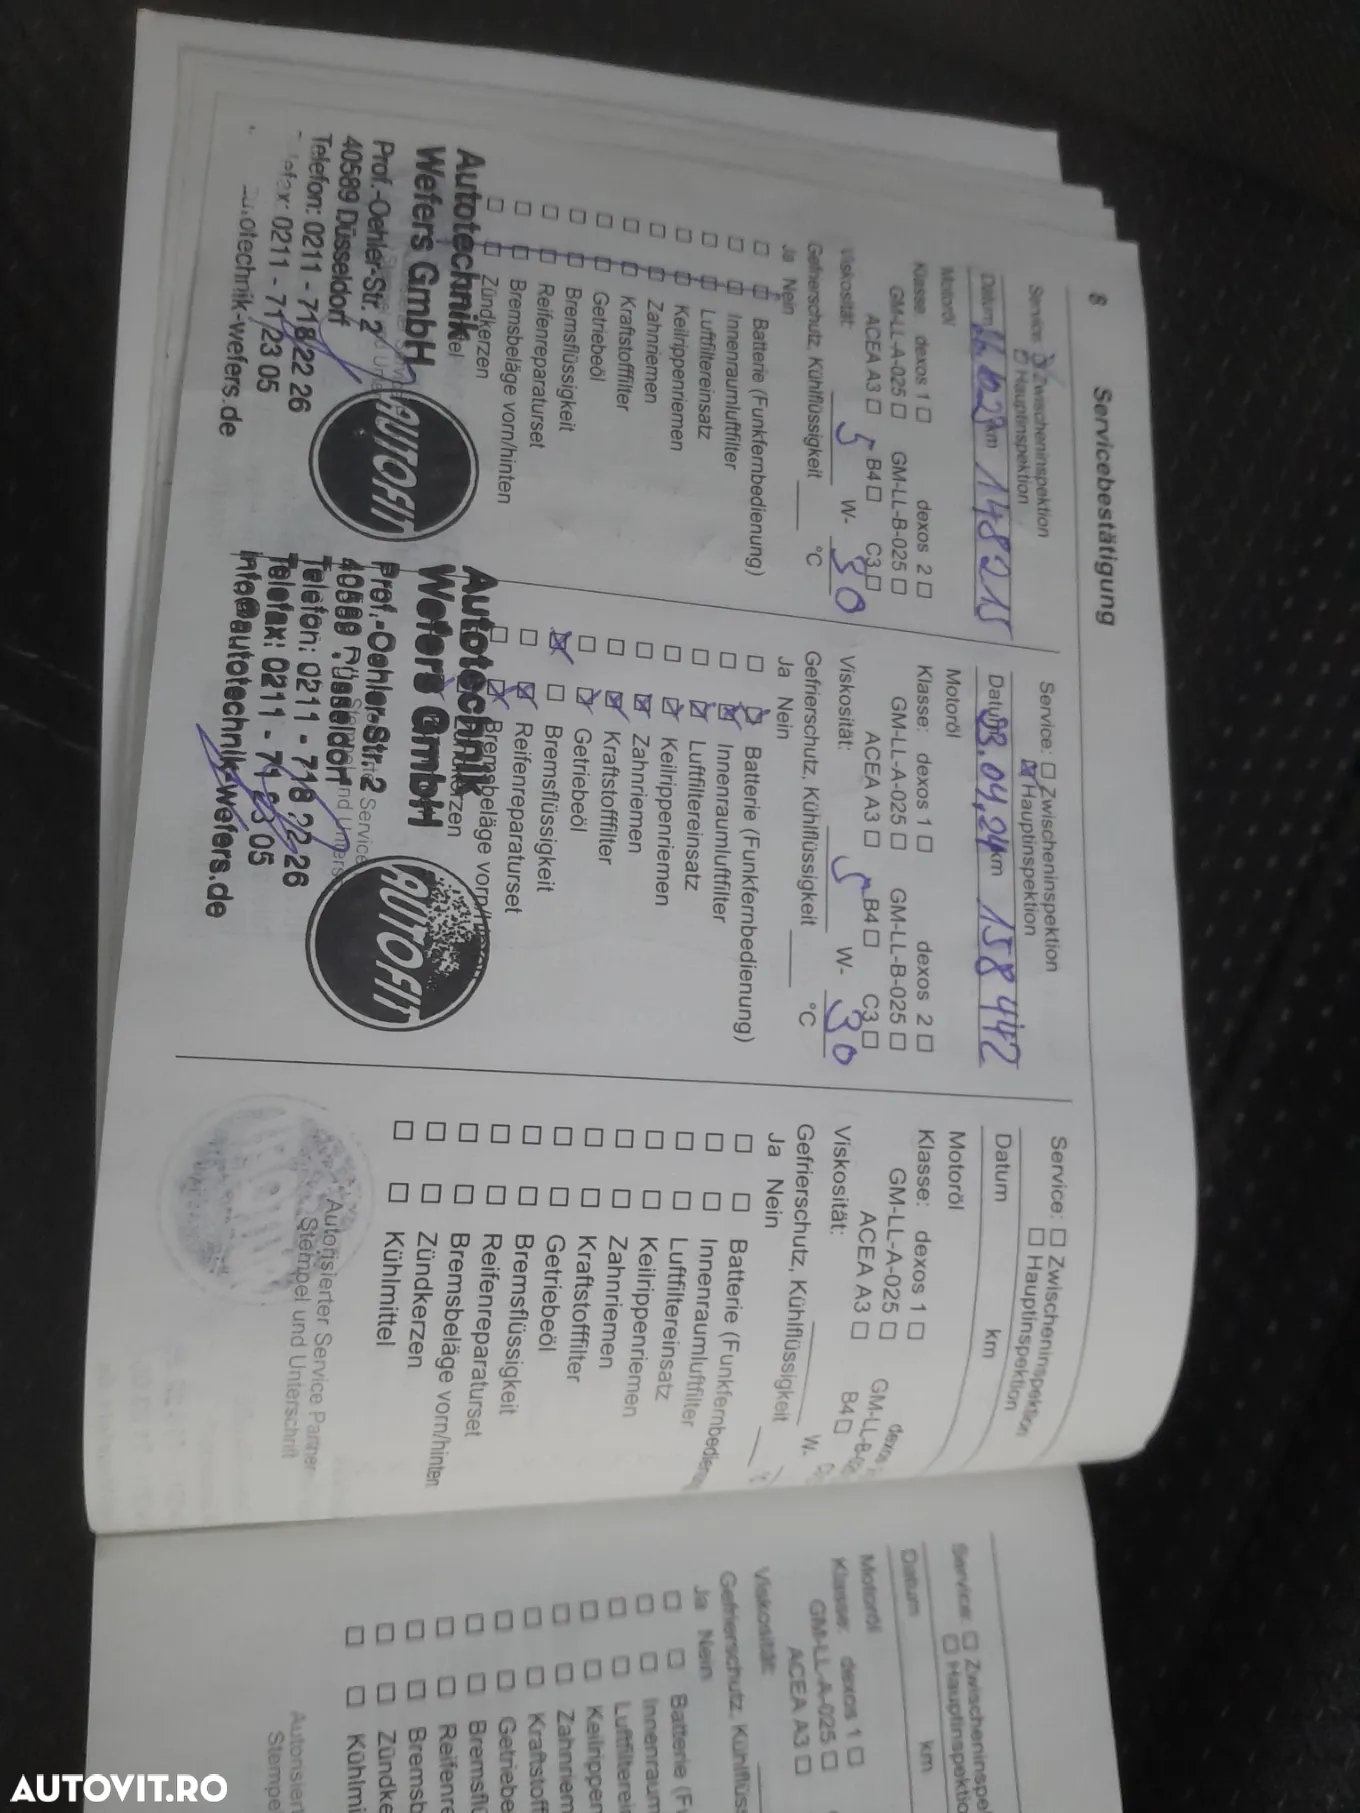 8 Servicebestätigung
Service: Zwischeninspektion
Hauptinspektion
Datum km 148215
Motoröl
Klasse: dexos 1 dexos 2
GM-LL-A-025 GM-LL-B-025
ACEA A3 B4 C3
Viskosität: 5 W- 30
Gefrierschutz, Kühlflüssigkeit °C
Ja Nein
Batterie (Funkfernbedienung)
Innenraumluftfilter
Luftfiltereinsatz
Keilrippenriemen
Zahnriemen
Kraftstofffilter
Getriebeöl
Bremsflüssigkeit
Reifenreparaturset
Bremsbeläge vorn/hinten
Zündkerzen
Autotechnik
Wefers GmbH
Prof.-Oehler-Str. 2
40589 Düsseldorf
Telefon: 0211 - 718 22 26
0211 - 71 23 05
AUTOFIT
Service: Zwischeninspektion
Hauptinspektion
Datum 03.04.24 km 158442
Motoröl
Klasse: dexos 1 dexos 2
GM-LL-A-025 GM-LL-B-025
ACEA A3 B4 C3
Viskosität: 5 W- 30
Gefrierschutz, Kühlflüssigkeit °C
Ja Nein
Batterie (Funkfernbedienung)
Innenraumluftfilter
Luftfiltereinsatz
Keilrippenriemen
Zahnriemen
Kraftstofffilter
Getriebeöl
Bremsflüssigkeit
Reifenreparaturset
Bremsbeläge
Autotechnik
Wefers GmbH
Prof.-Oehler-Str. 2
40589 Düsseldorf
Telefon: 0211 - 718 22 26
Telefax: 0211 - 71 23 05
info@autotechnik-wefers.de
AUTOFIT
Service: Zwischeninspektion
Hauptinspektion
Datum km
Motoröl
Klasse: dexos 1 dexos
GM-LL-A-025
ACEA A3 B4
Viskosität: W-
Gefrierschutz, Kühlflüssigkeit
Ja Nein
Batterie
Innenraumluftfilter
Luftfiltereinsatz
Keilrippenriemen
Zahnriemen
Kraftstofffilter
Getriebeöl
Bremsflüssigkeit
Reifenreparaturset
Bremsbeläge vorn/hinten
Zündkerzen
Kühlmittel
Autorisierter Service Partner
Stempel und Unterschrift
Service:
Datum km
Motoröl
Klasse: dexos 1
GM-LL-A-025
ACEA A3
Viskosität:
Gefrierschutz,
Ja Nein
Batterie
AUTOVIT.RO